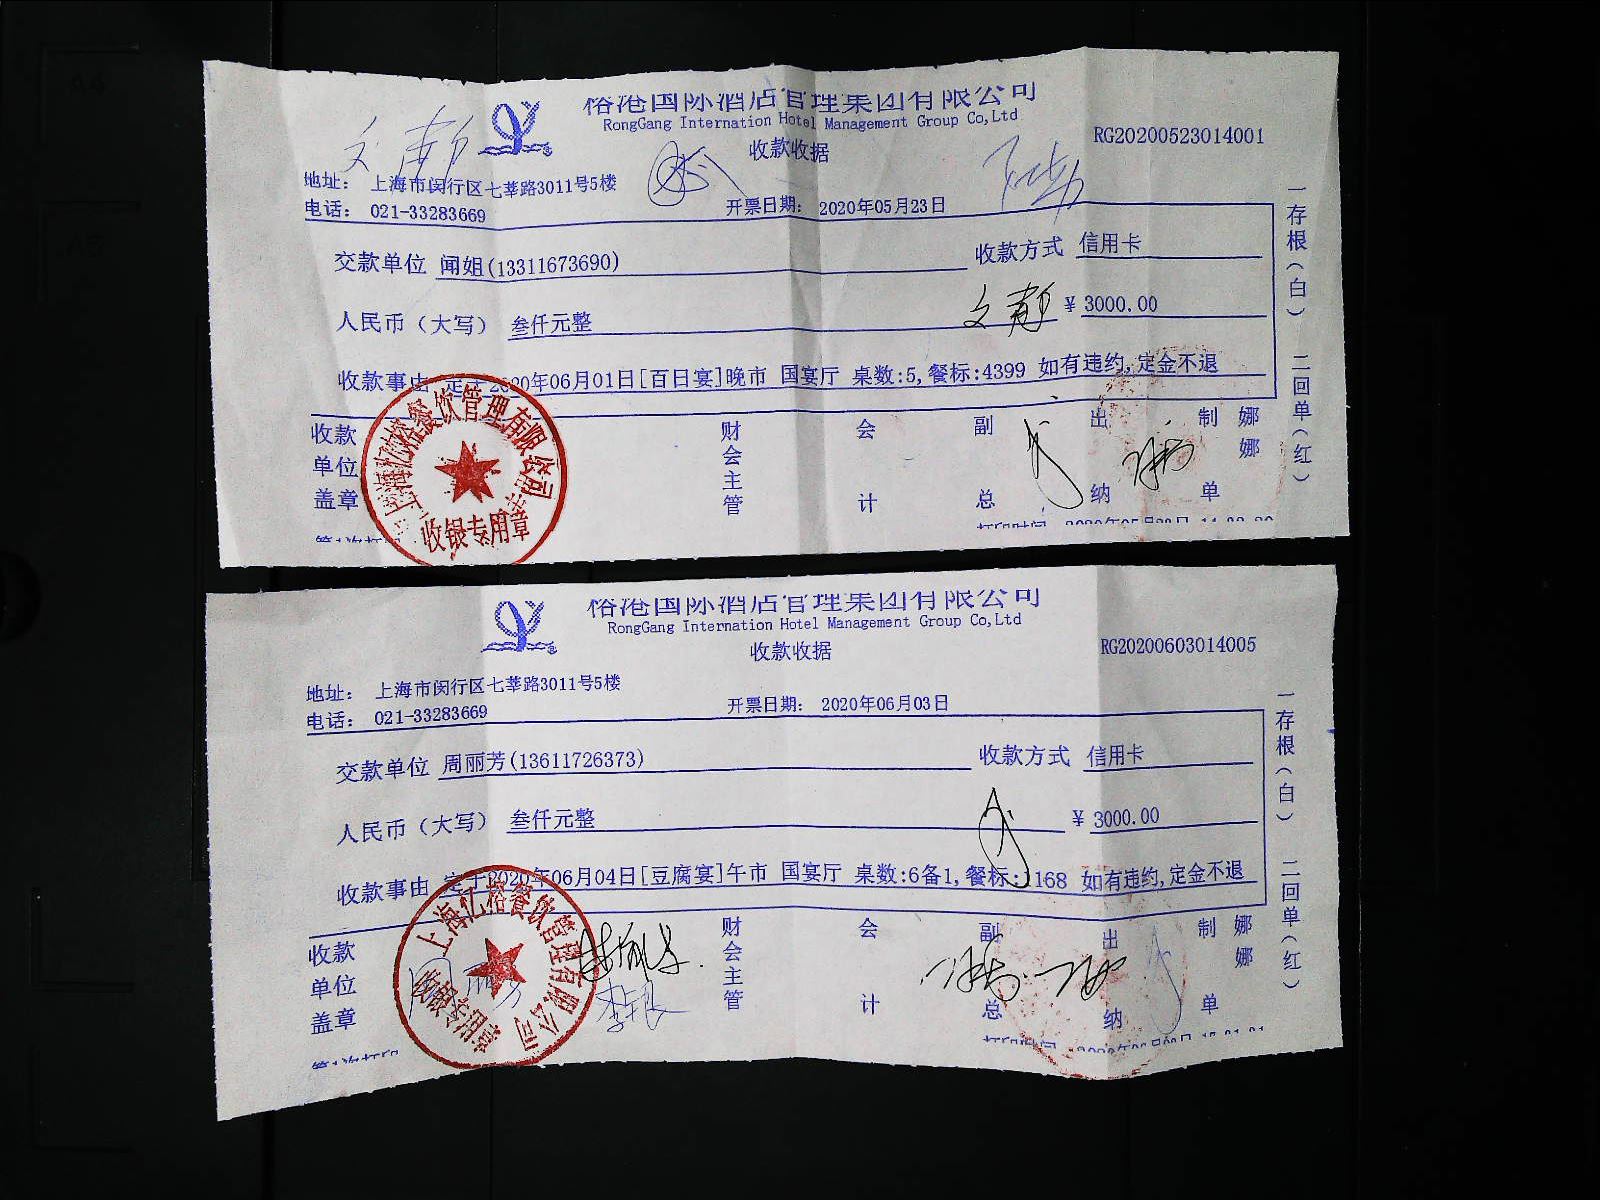 裕港国际酒店管理集团有限公司
RongGang Internation Hotel Management Group Co,Ltd
收款收据
RG20200523014001
文静
地址： 上海市闵行区七莘路3011号5楼
电话： 021-33283669
开票日期： 2020年05月23日
交款单位 闻姐(13311673690)
收款方式 信用卡
人民币（大写） 叁仟元整
文静
¥ 3000.00
收款事由 定于2020年06月01日[百日宴]晚市 国宴厅 桌数:5,餐标:4399 如有违约,定金不退
收款单位盖章
财会主管
会计
副总
出纳
制单
娜娜
一存根（白） 二回单（红）
上海亿裕餐饮管理有限公司
收银专用章
第1次打印
打印时间
裕港国际酒店管理集团有限公司
RongGang Internation Hotel Management Group Co,Ltd
收款收据
RG20200603014005
地址： 上海市闵行区七莘路3011号5楼
电话： 021-33283669
开票日期： 2020年06月03日
交款单位 周丽芳(13611726373)
收款方式 信用卡
人民币（大写） 叁仟元整
¥ 3000.00
收款事由 定于2020年06月04日[豆腐宴]午市 国宴厅 桌数:6备1,餐标:1168 如有违约,定金不退
收款单位盖章
财会主管
会计
副总
出纳
制单
娜娜
一存根（白） 二回单（红）
上海亿裕餐饮管理有限公司
收银专用章
第1次打印
打印时间